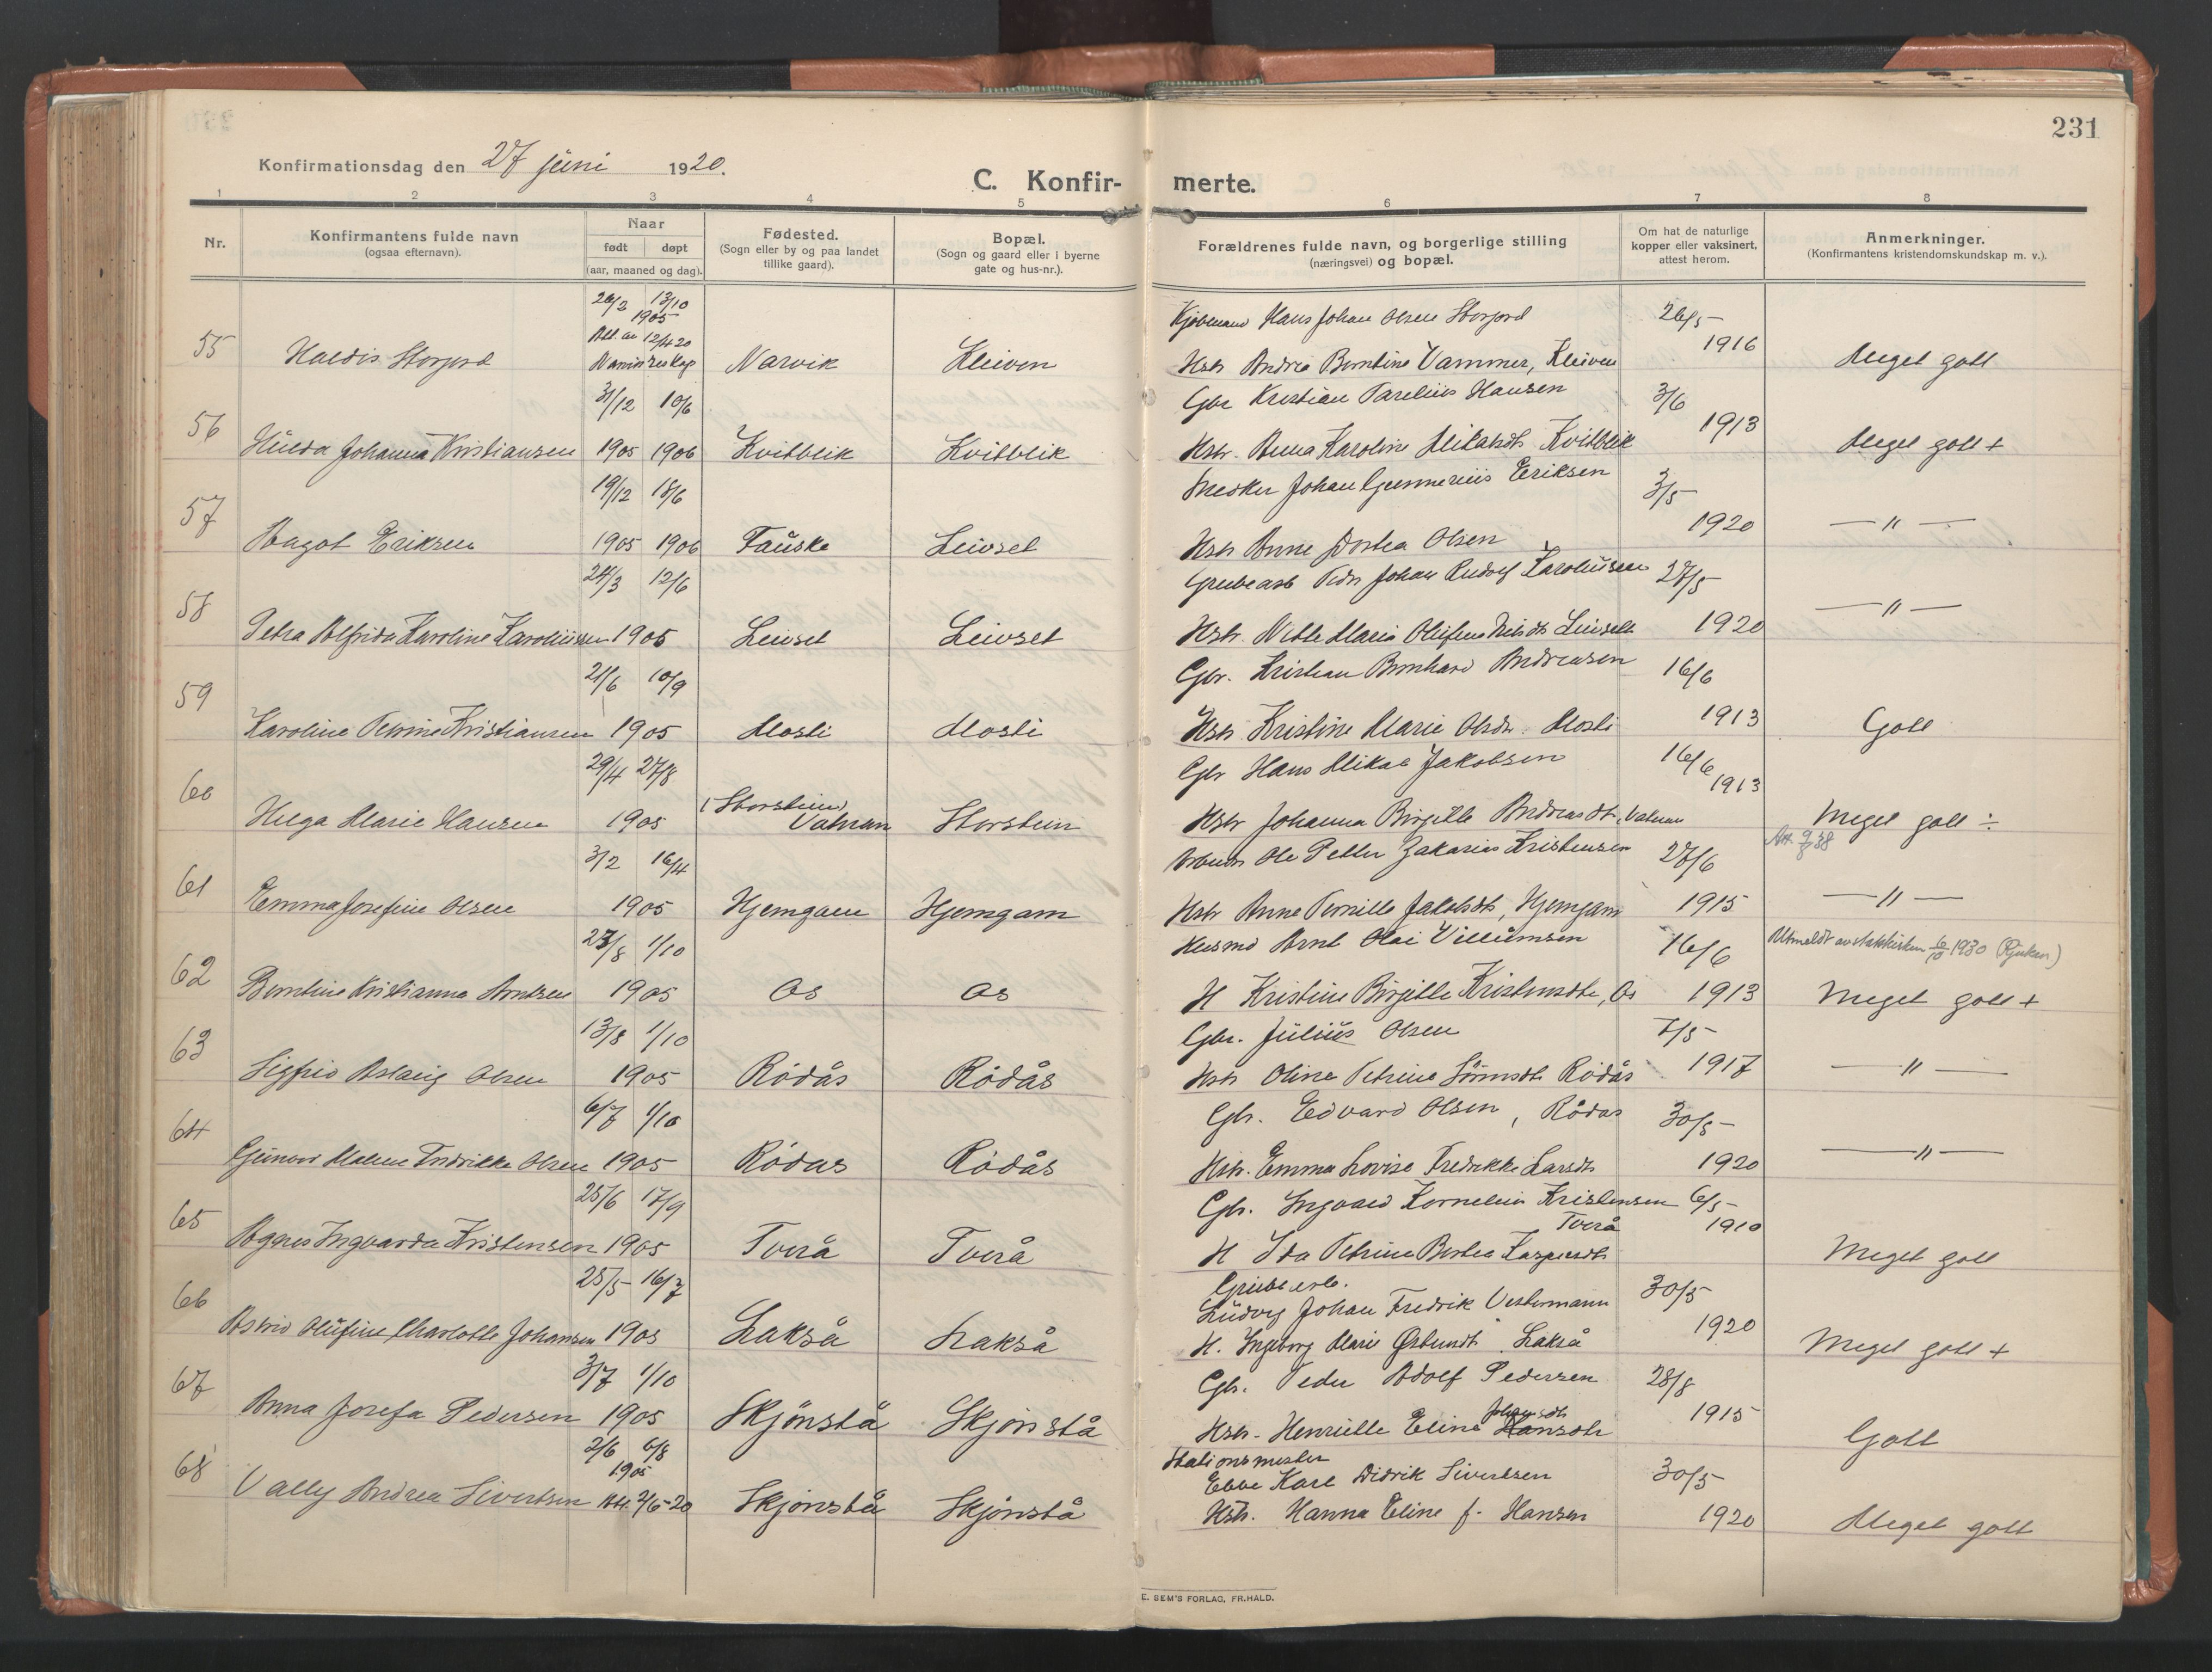 231
Konfirmationsdag den 27 juni 1920.
C. Konfir- merte.
1 2 3 4 5 6 7 8
Nr.
Konfirmantens fulde navn
(ogsaa efternavn).
Naar
født døpt
(aar, maaned og dag).
Fødested.
(Sogn eller by og paa landet
tillike gaard).
Bopæl.
(Sogn og gaard eller i byerne
gate og hus-nr.).
Forældrenes fulde navn, og borgerlige stilling
(næringsvei) og bopæl.
Om hat de naturlige
kopper eller vaksinert,
attest herom.
Anmerkninger.
(Konfirmantens kristendomskundskap m. v.).
26/2 13/10 Kjøbmand Hans Johan Olsen Storjord 26/5
1905
Att. av 12/4 20
55 Haldis Storjord Narvik Kleiven Hstr Andrea Berntine Vammer, Kleiven 1916 Meget godt
31/12 10/6 Gbr Kristian Parelius Hansen 3/6
56 Hulda Johanna Kristiansen 1905 1906 Kvitblik Kvitblik Hstr. Anna Karoline Mikalsdt Kvitblik 1913 Meget godt +
19/12 18/6 Snedker Johan Gunnerius Eriksen 3/5
57 Dagot Eriksen 1905 1906 Fauske Leivset Hstr Anne Dortea Olsen 1920 — " —
24/3 12/6 Grubearb Peder Johan Rudolf Karoliussen 27/5
58 Petra Alfrida Karoline Karoliussen 1905 Leivset Leivset Hstr. Nille Maria Olufine Nilsdt Leivset 1920 — " —
21/6 10/9 Gbr. Kristian Bernhard Andreasen 16/6
59 Karoline Petrine Kristiansen 1905 Mosti Mosti Hstr Kristine Marie Olsdr. Mosti 1913 Godt
29/4 27/8 Gbr Hans Mikal Jakobsen 16/6 1913
60 Helga Marie Hansen 1905 (Storstein) Vatnan Storstein Hstr Johanna Birgitte Andreasdt, Vatnan Meget godt ÷
Att 9/8 38
3/2 16/4 Arbeider Ole Petter Zakarias Kristensen 27/6
61 Emma Josefine Olsen 1905 Hjemgam Hjemgam Hstr Anne Pernille Jakobsdt, Hjemgam 1915 — " —
23/8 1/10 Husmd Arnt Olai Villumsen 16/6 Utmeldt av statskirken 6/10 1930 (Rjukan)
62 Berntine Kristianna Arntsen 1905 Os Os H Kristine Birgitte Kristensdtr, Os 1913 Meget godt +
13/8 1/10 Gbr. Julius Olsen 7/5
63 Sigfrid Aslaug Olsen 1905 Rödås Rödås Hstr Oline Petrine Sörensdt Rödås 1917 — " —
6/7 1/10 Gbr. Edvard Olsen, Rödas 30/5
64 Gunvor Malene Fredrikke Olsen 1905 Rödas Rödås Hstr. Emma Lovise Fredrikke Larsdt 1920 — " —
25/6 17/9 Gbr. Ingvald Kornelius Kristensen 6/5
Tverå 1910
65 Agnes Ingvarda Kristensen 1905 Tverå Tverå H Ida Petrine Bertea Kaspersdt Meget godt
25/5 16/7 Grubearb. 30/5
Ludvig Johan Fredrik Vestermann
66 Astrid Olufine Charlotte Johansen 1905 Lakså Lakså H. Ingeborg Marie Østensdt Lakså 1920 Meget godt +
3/7 1/10 Gbr. Peder Adolf Pedersen 28/8
67 Anna Josefa Pedersen 1905 Skjönstå Skjönstå Hstr. Henriette Eline Johansdt Hansdtr 1915 Godt
2/6 6/8 Stationsmester
1905 Ebbe Karl Didrik Sivertsen 30/5
68 Vally Andrea Sivertsen Att. 2/6-20 Skjönstå Skjönstå Hstr. Hanna Eline f. Hansen 1920 Meget godt
E. SEM'S FORLAG, FR.HALD.